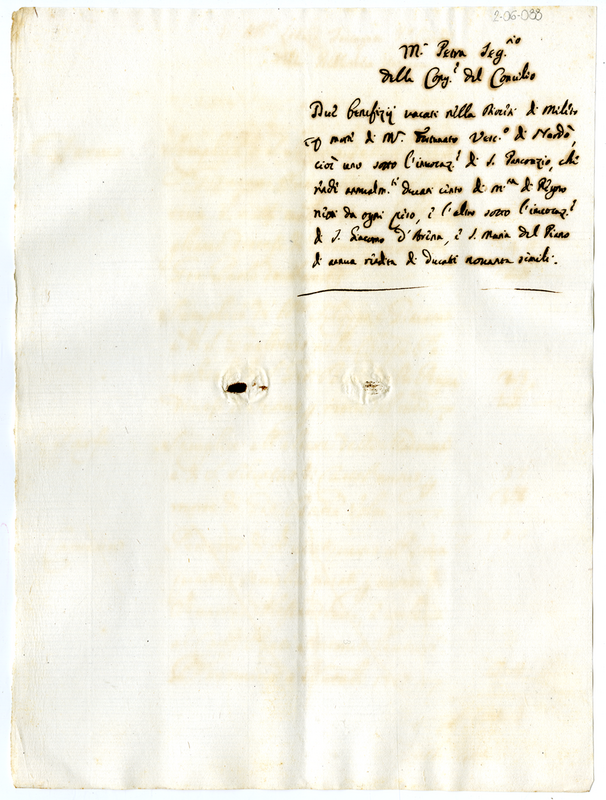 2-06-088
M.r Petra Seg.rio
della Cong.e del Concilio
Due benefizij vacati nella Diocesi di Mileto
morte di M.r Fortunato Vesc.o di Nardò,
cioè uno sotto l'invocaz.e di S. Pancrazio, che
rende annualm.te ducati cento di m.ta di Regno
netti da ogni peso, e l'altro sotto l'invocaz.e
di S. Giacomo D'Arena, e S. Maria del Piano
di annua rendita di ducati novanta simili.